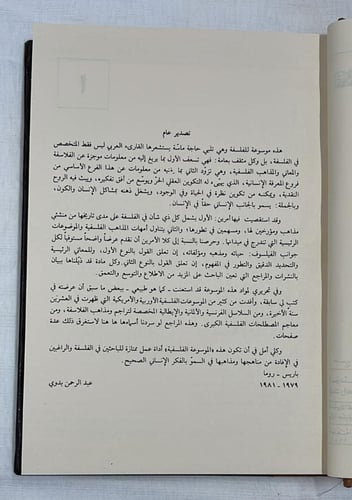 تصدير عام
هذه موسوعة للفلسفة وهي تلبي حاجة ماسّة يستشعرها القارىء العربي ليس فقط المتخصص
في الفلسفة، بل وكل مثقف بعامة: فهي تسعف الأول بما يريغ إليه من معلومات موجزة عن الفلاسفة
والمعاني والمذاهب الفلسفية، وهي تزوّد الثاني بما ينبغي من معلومات عن هذا الفرع الأساسي من
فروع المعرفة الإنسانية، الذي يهيّىء له التكوين العقلي الحرّ ويوسّع من أفق تفكيره، ويبث فيه الروح
النقدية، ويمكنه من تكوين نظرة في الحياة وفي الوجود، ويشغل ذهنه بمشاكل الإنسان والكون،
وبالجملة: يسمو بالجانب الإنساني حقاً في الإنسان.
وقد استقصيت فيها أمرين: الأول يشمل كل ذي شأن في الفلسفة على مدى تاريخها من منشئي
مذاهب ومؤرخين لها، ومسهمين في تطورها، والثاني يتناول أمهات المذاهب الفلسفية والموضوعات
الرئيسية التي تندرج في ميدانها. وحرصنا بالنسبة إلى كلا الأمرين أن نقدم عرضاً واضحاً مستوفياً لكل
جوانب الفيلسوف: حياته ومذهبه ومؤلفاته، إن تعلق القول بالنوع الأول، وللمعاني الرئيسية
والتحديد الدقيق والتطور في المفهوم، إن تعلق القول بالنوع الثاني. وكل مادة قد ذيّلناها ببيان
بالنشرات والمراجع التي تعين الباحث على المزيد من الاطلاع والتوسع والتعمق.
وفي تحريري لمواد هذه الموسوعة قد استعنت ـ كما هو طبيعي ـ ببعض ما سبق أن عرضته في
كتب لي سابقة، وأفدت من كثير من الموسوعات الفلسفية الأوربية والأمريكية التي ظهرت في العشرين
سنة الأخيرة، ومن السلاسل الفرنسية والألمانية والإيطالية المخصصة لتراجم ومذاهب الفلاسفة، ومن
معاجم المصطلحات الفلسفية الكبرى. وهذه المراجع لو سردنا أسماءها ها هنا لاستغرق ذلك عدة
صفحات.
وكلي أمل في أن تكون هذه «الموسوعة الفلسفية» أداة عمل ممتازة للباحثين في الفلسفة والراغبين
في الإفادة من مناهجها ومذاهبها في السموّ بالفكر الإنساني الصحيح.
باريس ـ روما
١٩٧٩ ـ ١٩٨١
عبد الرحمن بدوي